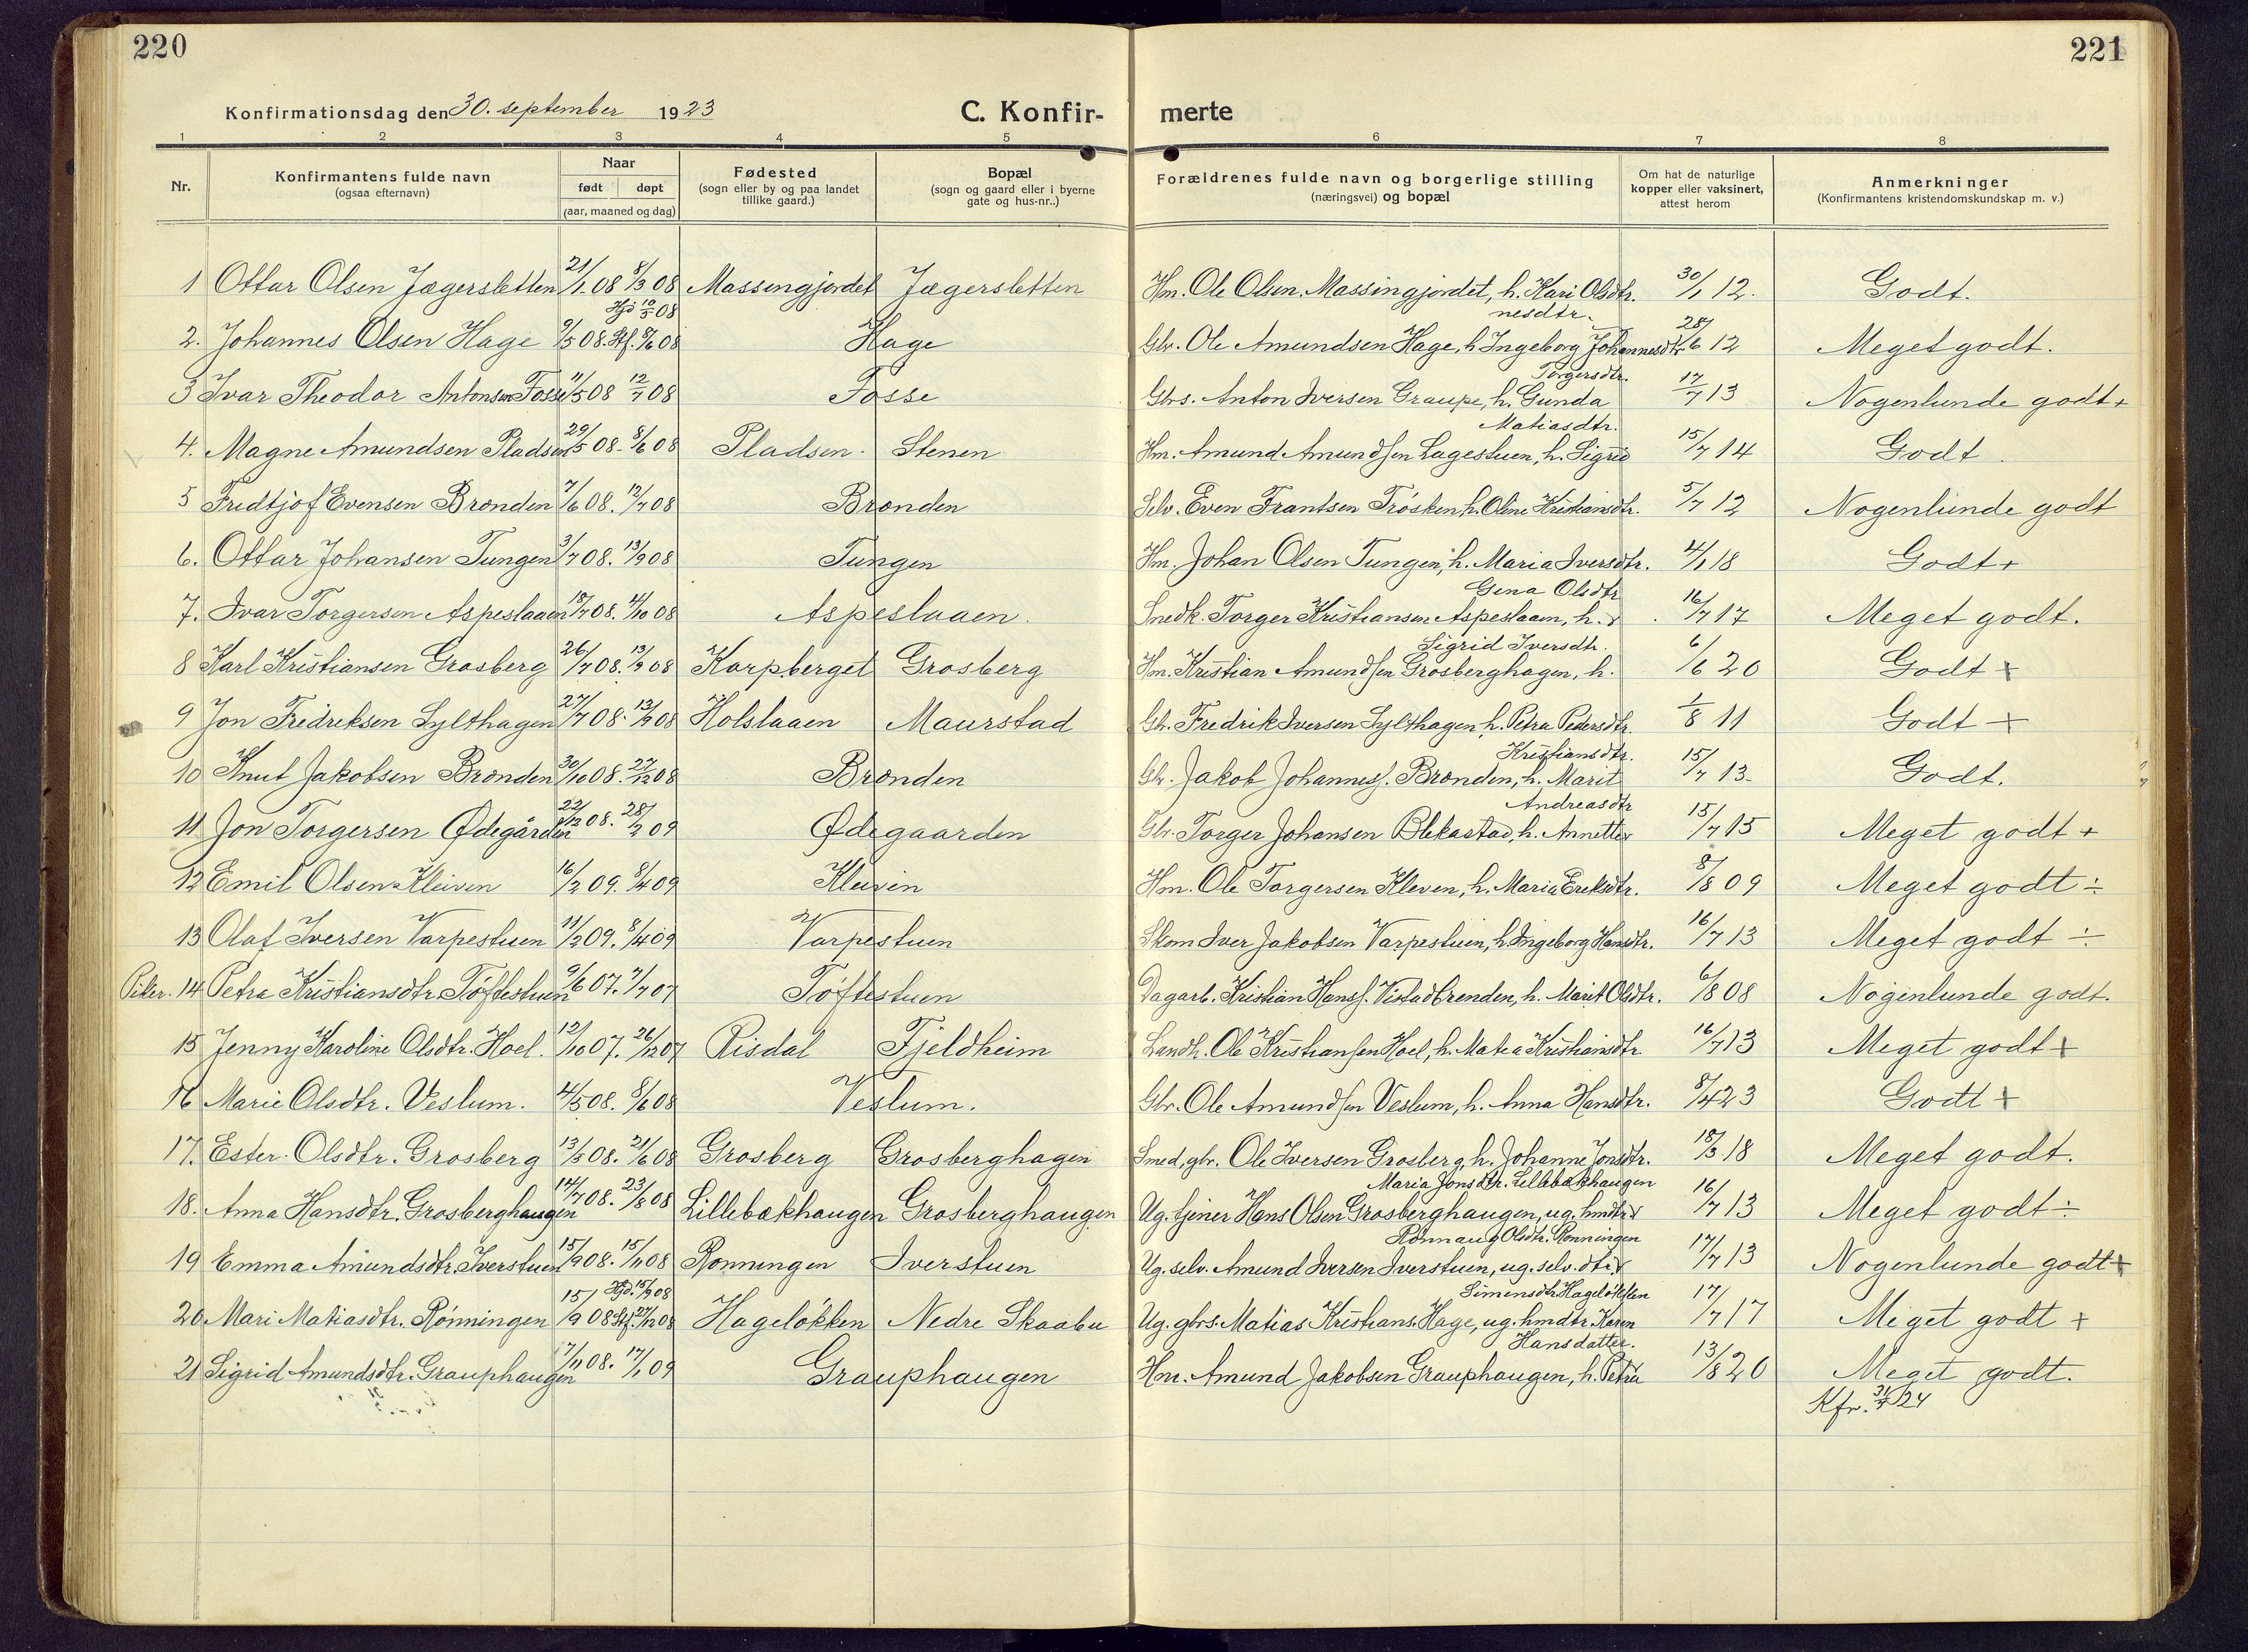 220
221
Konfirmationsdag den 30. september 1923
C. Konfir-
merte
1 2 3 4 5 6 7 8
Nr.
Konfirmantens fulde navn
(ogsaa efternavn)
Naar
født døpt
(aar, maaned og dag)
Fødested
(sogn eller by og paa landet
tillike gaard.)
Bopæl
(sogn og gaard eller i byerne
gate og hus-nr..)
Forældrenes fulde navn og borgerlige stilling
(næringsvei) og bopæl
Om hat de naturlige
kopper eller vaksinert,
attest herom
Anmerkninger
(Konfirmantens kristendomskundskap m. v.)
1 Ottar Olsen Jægersletten 21/1 08 8/3 08 Massengjordet Jægersletten Hm. Ole Olsen Massingjordet, h. Kari Olsdtr. 30/1 12. Godt.
Hjd 10/5 08 nesdtr.
2. Johannes Olsen Hage 9/5 08. Stf. 8/6 08 Hage Gbr. Ole Amundsen Hage, h Ingeborg Johannesdtr 28/6 12 Meget godt.
Torgersdtr.
3 Ivar Theodor Antonsen Fosse 11/5 08 12/7 08 Fosse Gbs. Anton Iversen Graupe, h. Gunda 17/7 13 Nogenlunde godt+
Matiasdtr.
4. Magne Amundsen Pladsen 29/5 08- 8/6 08 Pladsen. Stenen Hm. Amund Amundsen Lagestuen, h. Sigrid 15/7 14 Godt.
5 Fredtjof Evensen Brænden 7/6 08. 12/7 08 Brænden Selv. Even Frantsen Trösken h. Oline Kristiansdtr. 5/7 12 Nogenlunde godt
6. Ottar Johansen Tungen 3/7 08. 13/9 08 Tungen Hm. Johan Olsen Tungen, h. Maria Iversdtr. 4/1 18 Godt+
Gina Olsdtr
7. Ivar Torgersen Aspeslaaen 18/7 08. 4/10 08 Aspeslaaen. Snedk. Torger Kristiansen Aspeslaaen, h. 16/7 17 Meget godt.
Sigrid Iversdtr.
8 Karl Kristiansen Grosberg 26/7 08. 13/9 08 Korpberget Grosberg Hm. Kristian Amundsen Grosberghagen, h. 6/6 20 Godt +
9 Jon Fredreksen Sylthagen 27/7 08. 13/9 08 Holslaaen Maurstad Gbr. Fredrik Iversen Sylthagen, h. Petra Pedersdtr. 1/8 11 Godt +
Kristiansdtr.
10 Knut Jakobsen Brænden 30/10 08. 27/12 08 Brænden Gbr. Jakob Johanness. Brænden, h. Marit 15/7 13. Godt.
Andreasdtr
11 Jon Torgersen Ødegården 22/12 08. 28/2 09 Ødegaarden Gbr. Torger Johansen Blekastad, h. Annette 15/7 15 Meget godt +
12 Emil Olsen Kleiven 16/2 09. 8/4 09 Kleiven Hm. Ole Torgersen Kleven, h. Maria Ereksdtr. 8/8 09 Meget godt ÷
13 Olaf Iversen Varpestuen 11/2 09. 8/4 09 Varpestuen Skom Iver Jakobsen Varpestuen, h Ingeborg Hansdtr. 16/7 13 Meget godt ÷
Piker. 14 Petra Kristiansdtr. Töftestuen 9/6 07. 7/7 07 Töftestuen Dagarb. Kristian Hanss. Vistadbrenden, h. Marit Olsdtr. 6/8 08 Nogenlunde godt.
15 Jenny Karoline Olsdtr. Hoel. 12/10 07. 26/12 07 Risdal Fjeldheim Landh. Ole Kristiansen Hoel, h. Matea Kristiansdtr. 16/7 13 Meget godt +
16 Marie Olsdtr. Veslum. 4/5 08. 8/6 08 Veslum. Gbr. Ole Amundsen Veslum, h. Anna Hansdtr. 8/4 23 Godt +
17. Ester Olsdtr. Grosberg 13/5 08. 21/6 08 Grosberg Grosberghagen Smed, gbr. Ole Iversen Grosberg, h. Johanne Jonsdtr. 18/3 18 Meget godt.
Maria Jonsdtr. Lillebækhaugen
18. Anna Hansdtr. Grosberghaugen 14/7 08. 23/8 08 Lillebækhaugen Grosberghaugen Ug. tjener Hans Olsen Grosberghaugen, ug. hmdtr 16/7 13 Meget godt ÷
Rönnaug Olsdtr. Rønningen
19 Emma Amundsdtr. Iverstuen 15/9 08. 15/11 08 Rønningen Iverstuen Ug. selv. Amund Iversen Iverstuen, ug. selv. dtr 17/7 13 Nogenlunde godt +
Hjd. 15/9 08 Simensdtr. Hageløkken
20 Mari Matiasdtr. Rønningen 15/9 08 Stf. 27/12 08 Hageløkken Nedre Skaabu Ug. gbrs. Matias Kristians. Hage, ug. hmdtr Karen 17/7 17 Meget godt +
Hansdatter.
21 Sigrid Amundsdtr. Grauphaugen 7/11 08. 17/1 09 Grauphaugen Hm. Amund Jakobsen Grauphaugen, h. Petra 13/8 20 Meget godt.
Kfr. 24